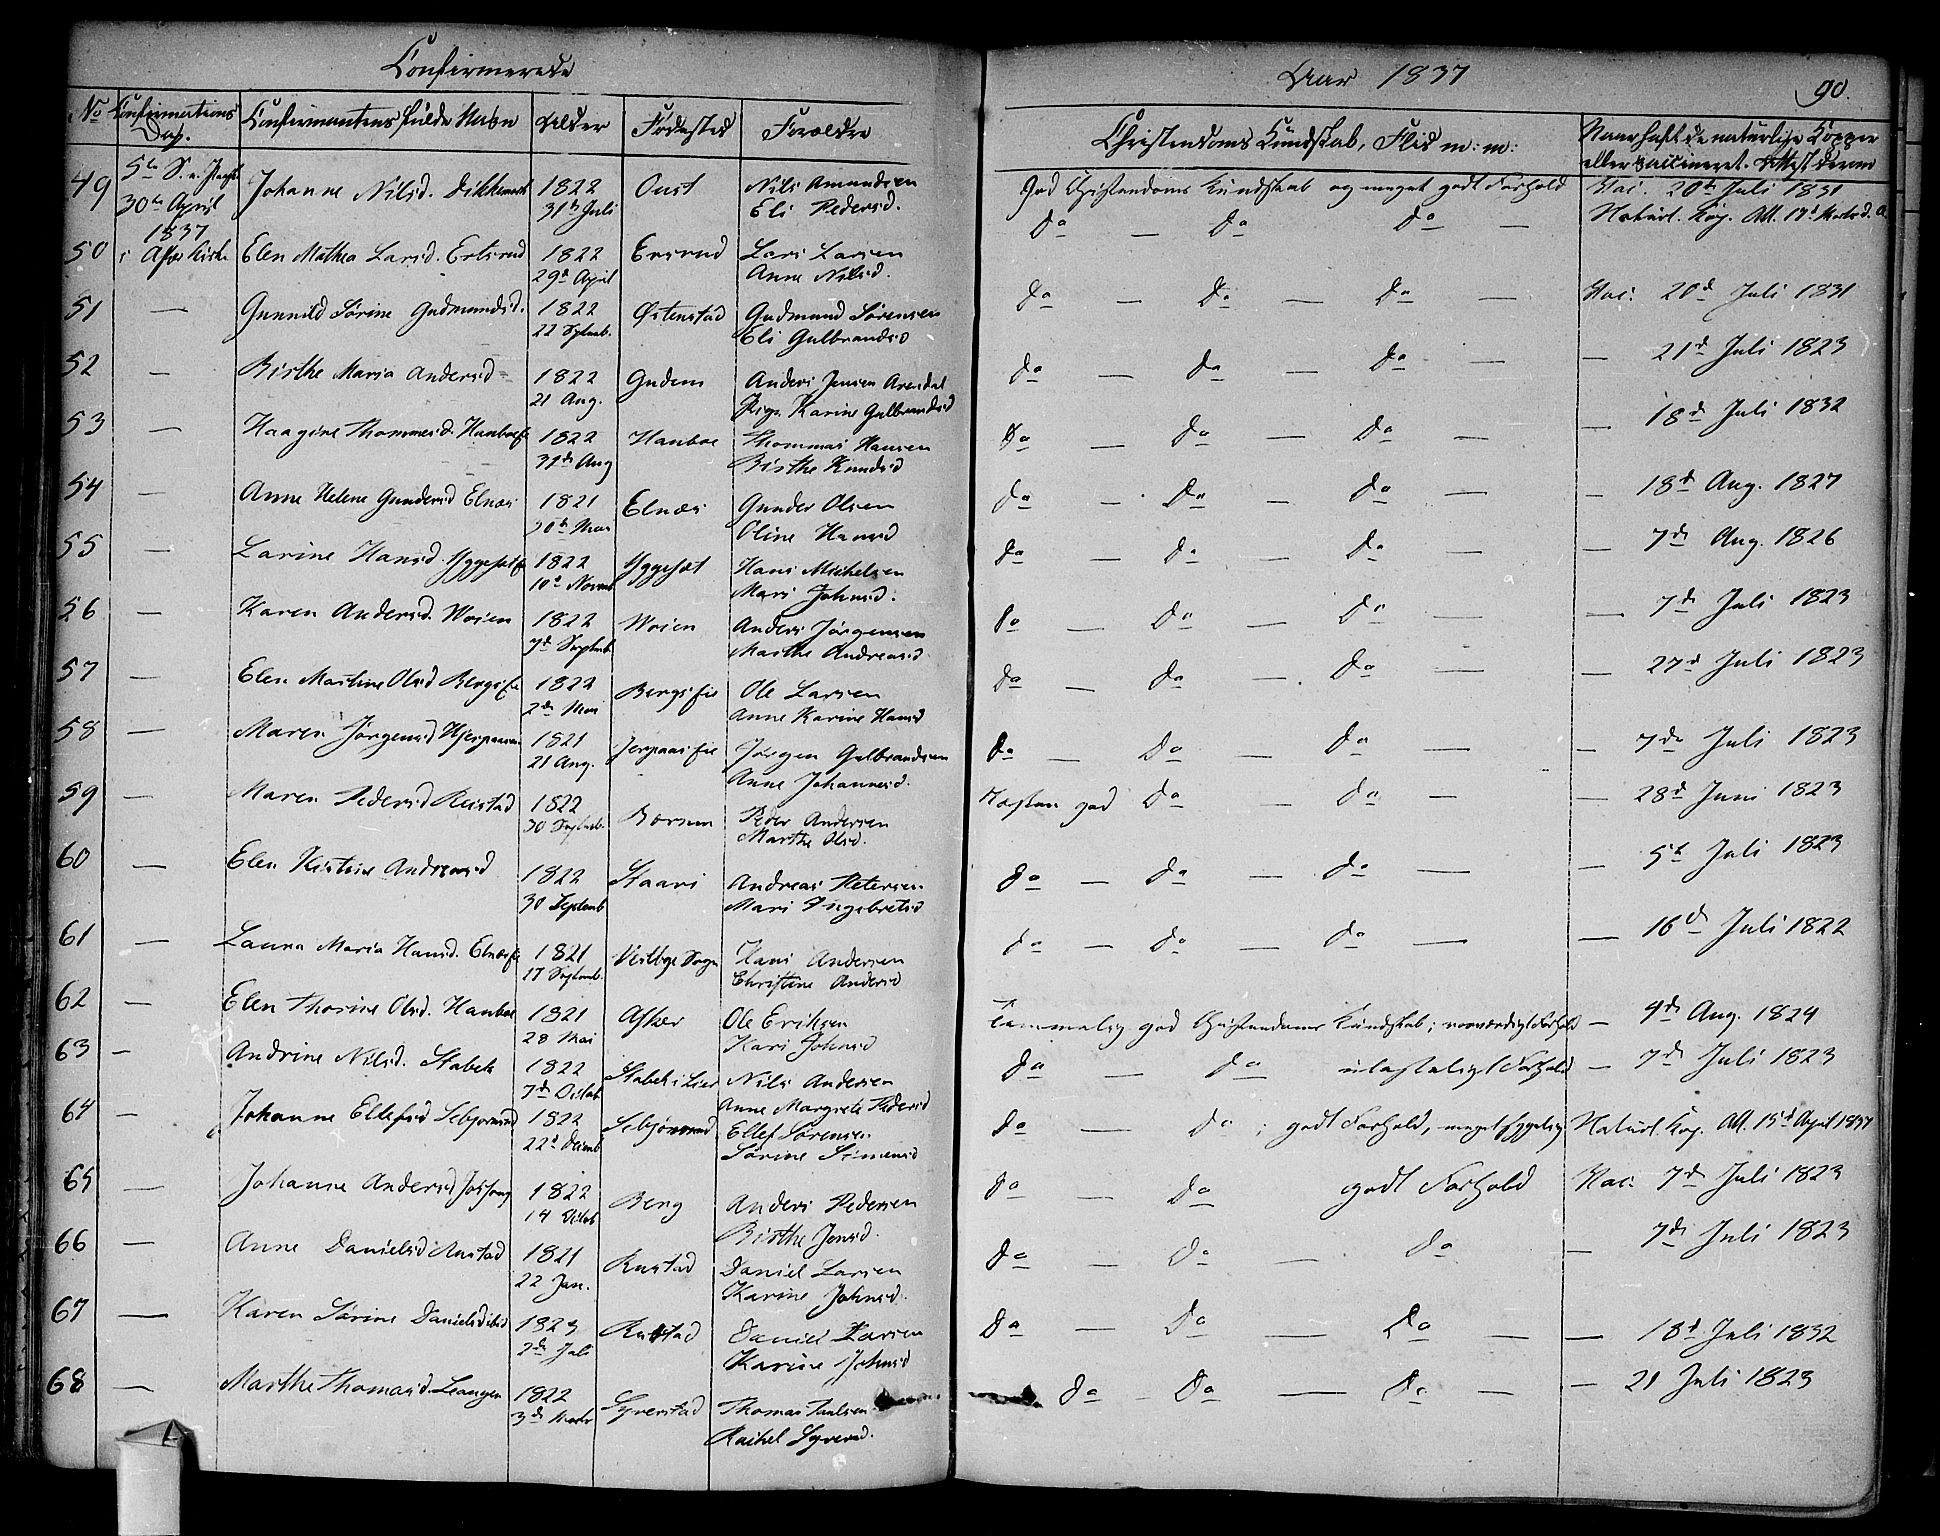 Confirmerede
Aar 1837
90.
No Confirmations Dag. Confirmantens fulde Navn Alder Fødested Forældre Christendoms Kundskab, Flid m: m: Naar havt de naturlige Kopper
eller vaccineret. Attest derom
49 5te S. 30te April 1837 i Asker Kirke Johanne Nilsd. Dikkemark 1822 31te Juli Oust Nils Amundsen God Christendoms Kundskab og meget godt Forhold Vac: 20de Juli 1831
Eli Pedersd.
50 Elen Mathea Larsd. Ertsrud 1822 Ersrud Lars Larsen do — do do — Naturl. Kop. Att.
29de April Anne Nilsd.
51 — Gunnild Sørine Gudmundsd. 1822 Østenstad Gudmund Sørensen do — do — do — Vac: 20de Juli 1831
22 Septemb. Eli Gulbrandsd
52 — Birthe Maria Andersd 1822 Gudem Anders Jensen Arendal do — do — do — — 21de Juli 1823
21 Aug. Karine Gulbrandsd
53 — Haagine Thommesd. Hanboe 1822 Hanboe Thommas Hansen do — do — do — — 18de Juli 1832
31te Aug Birthe Knudsd
54 — Anne Helene Gundersd Elnæs 1821 Elnæs Gunder Olsen do — do — do — — 18de Aug. 1827
Oline Hansd
55 — Larine Hansd. Yggeset 1822 Yggeset Hans Michelsen do — do — do — — 7de Aug. 1826
10de Novemb Mari Johnsd.
56 — Karen Andersd. Woien 1822 Woien Anders Jørgensen do — do — do — — 7de Juli 1823
7de Septemb. Marthe Andreasd
57 — Elen Martine Olsd Bergsfie 1822 Bergsfie Ole Larsen do — do — do — — 27de Juli 1823
2de Mai Anne Karine Hansd
58 — Maren Jørgensd 1821 Jerpaasfie Jørgen Gulbrandsen do — do — do — — 7de Juli 1823
21 Aug. Anne Johannesd.
59 — Maren Pedersd Reistad 1822 Borsum Peder Andersen Næsten god do — do — — 28de Juni 1823
30 Septemb. Marthe Olsd.
60 — Elen Kirstine Andreasd 1822 Staari Andreas Petersen do — do — do — — 5te Juli 1823
30 Septemb Mari Ingebretsd
61 — Laura Maria Hansd. Elnæs 1821 Vestbye Sogn Hans Andersen do — do — do — — 16de Juli 1822
17 Septemb. Christine Andersd
62 — Elen Thorine Olsd. Hanboe 1821 Asker Ole Eriksen Temmelig god Christendoms Kundskab; Forhold — 9de Aug. 1824
28 Mai Kari Johnsd
63 — Andrine Nilsd. Stabek 1822 Stabek i Lier Nils Andersen do — do ulasteligt Forhold — 7de Juli 1823
7de Octob Anne Margrete Pedersd
64 — Johanne Ellefsd Sebjørnrud 1822 Sebjørnrud Ellef Sørensen do — do; godt Forhold, meget Naturl. Kop. Att. 15de April 1837
22de Decemb Sørine Simensd
65 — Johanne Andersd 1822 Berg Anders Pedersen do — do godt Forhold Vac: 7de Juli 1823
14 Octob Birthe Jensd.
66 — Anne Danielsd Rustad 1821 Rustad Daniel Larsen do — do — do — 7de Juli 1823
22 Jan. Karine Johnsd.
67 — Karen Sørine Danielsd ibid 1823 Rustad Daniel Larsen do — do — do — — 18de Juli 1832
2de Juli Karine Johnsd
68 — Marthe Thomasd. Leangen 1822 Syverstad Thomas Paulsen do — do — do — — 21 Juli 1823
3de Rachel Syversd.